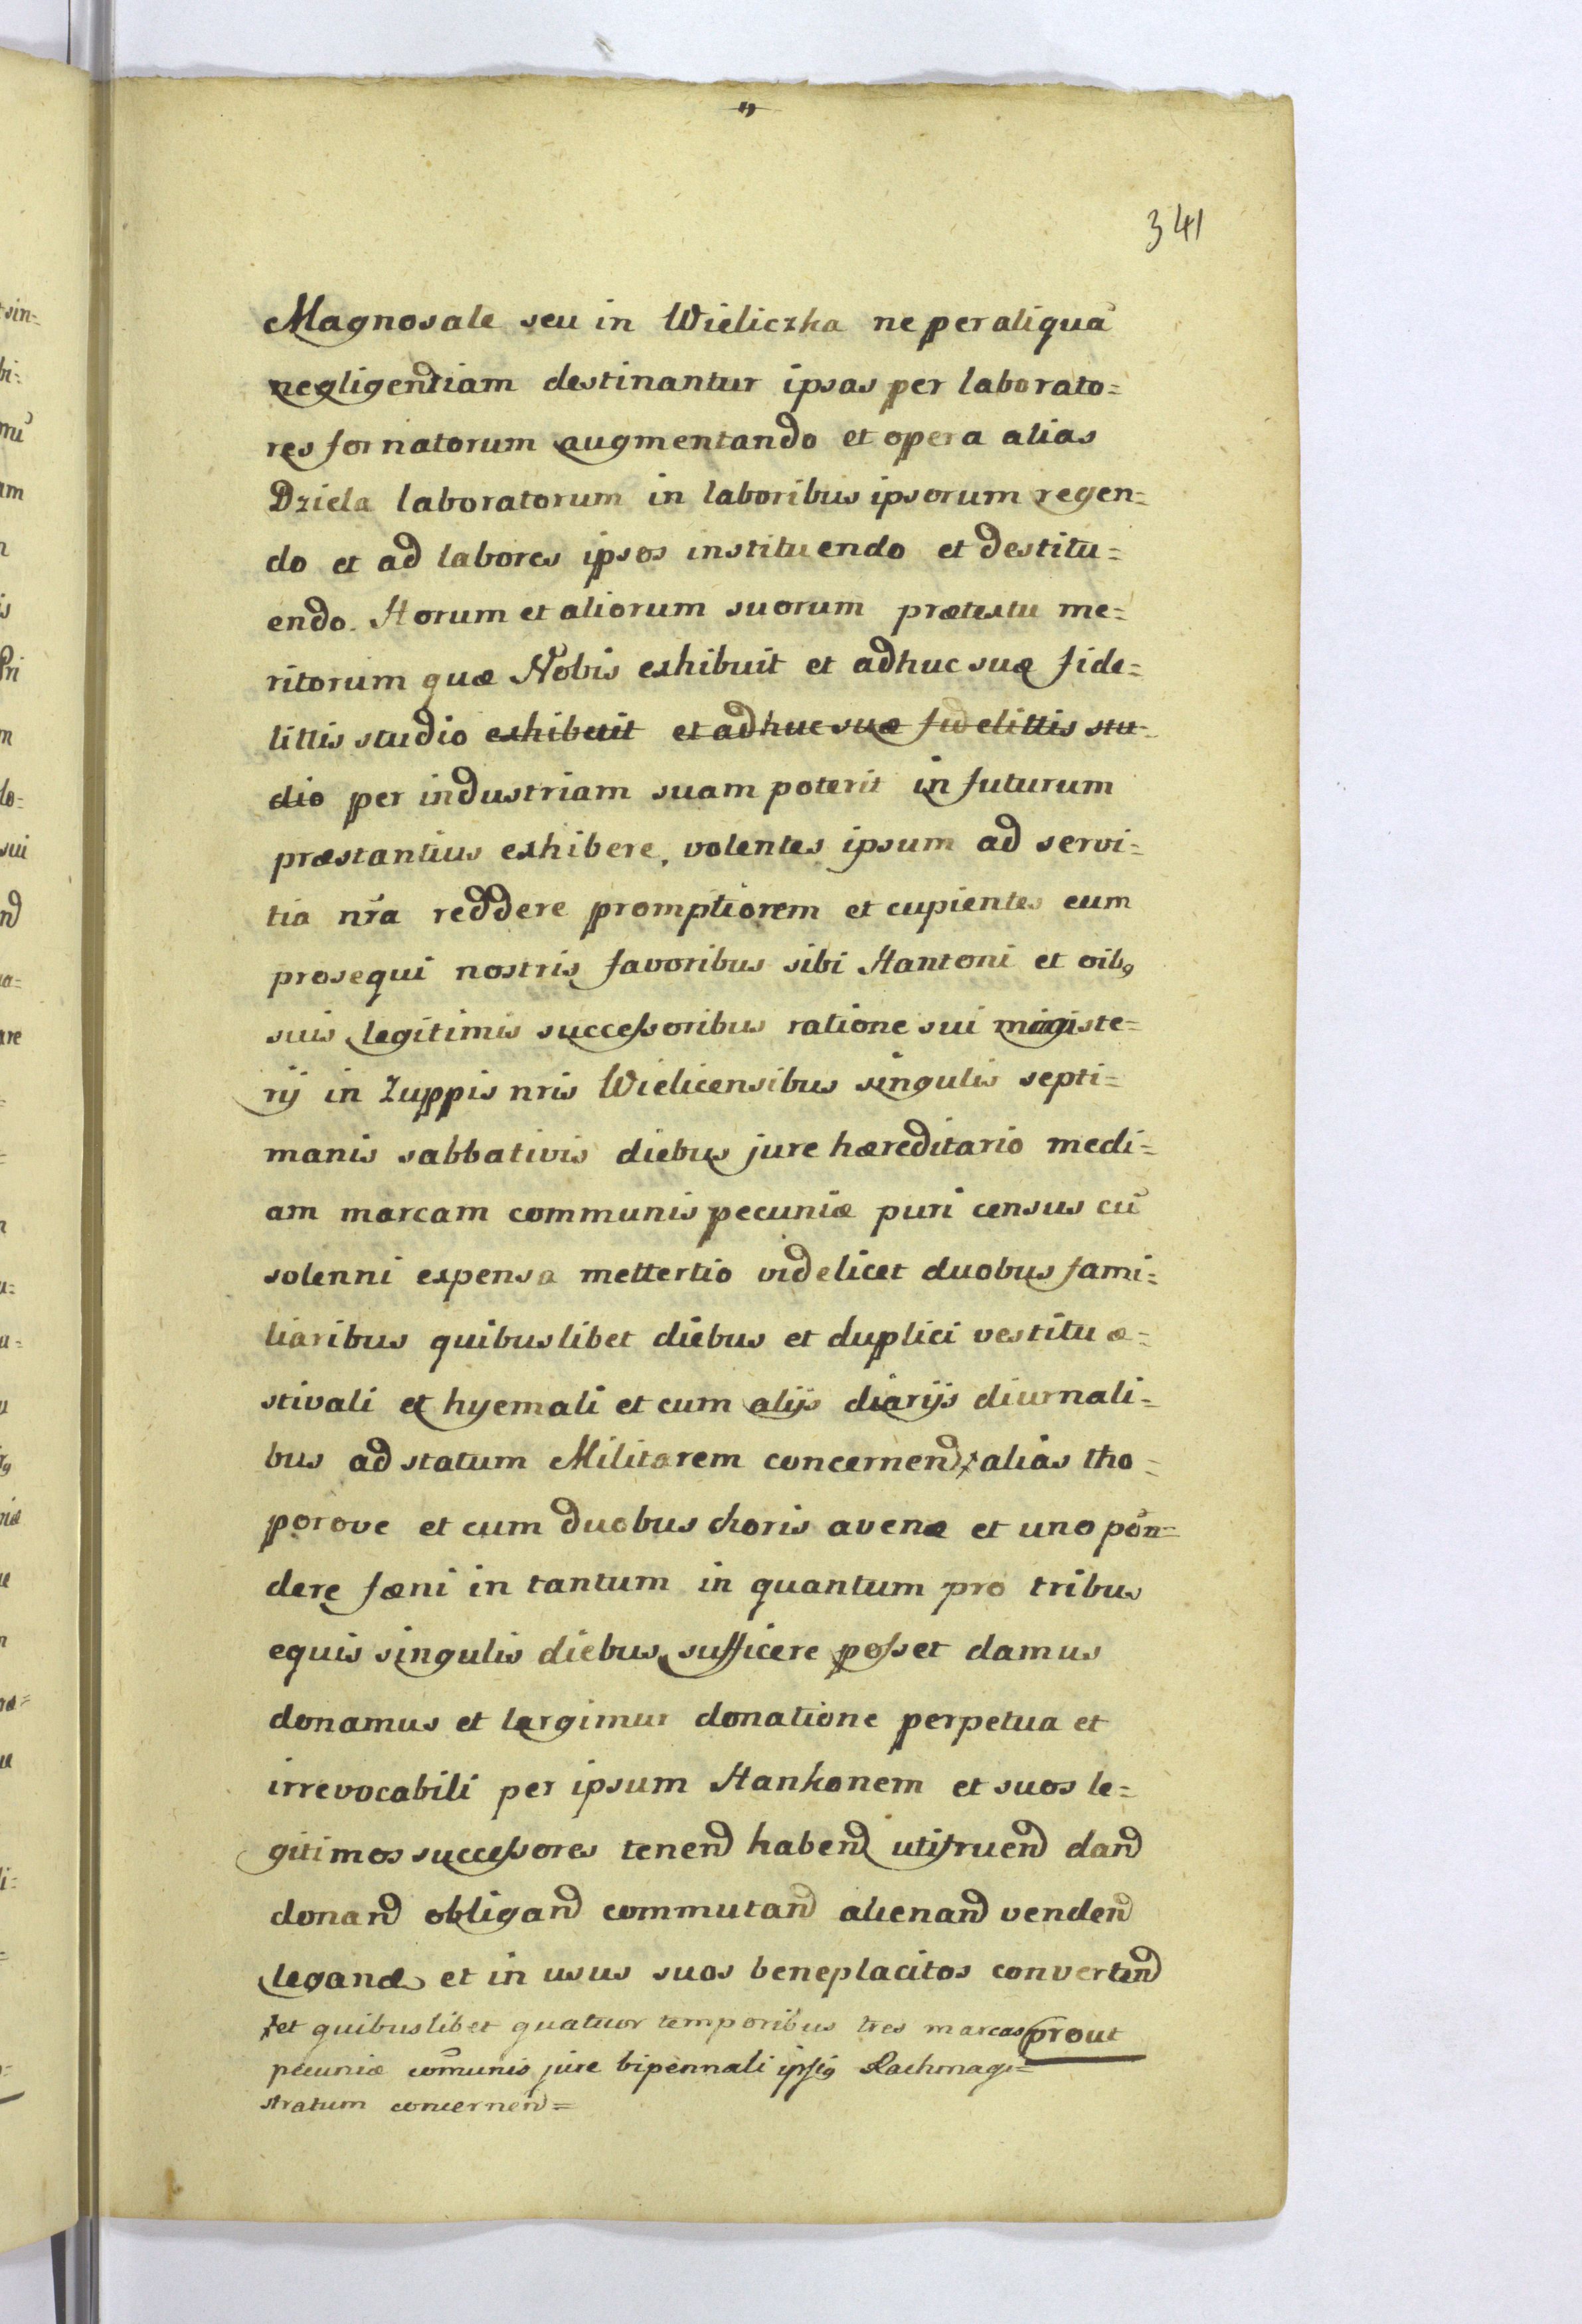 341
Magnosale seu in Wieliczka ne per aliquã
negligentiam destinantur ipsas per laborato=
res fornatorum augmentando et opera alias
Dziela laboratorum in laboribus ipsorum regen=
do et ad labores ipsos instituendo et destitu=
endo. Horum et aliorum suorum prætextu me=
ritorum quæ Nobis exhibuit et adhuc suæ fide=
littis studio exhibuit et adhuc suæ fidelittis stu=
dio per industriam suam poterit in futurum
præstantius exhibere, volentes ipsum ad servi=
tia nr̃a reddere promptiorem et cupientes eum
prosequi nostris favoribus sibi Hantoni et oibꝯ
suis legitimis successoribus ratione sui magiste=
rij in Zuppis nris Wielicensibus singulis septi=
manis sabbativis diebus jure hæreditario medi=
am marcam communis pecuniæ puri census cũ
solenni expensa mettertio videlicet duobus fami=
liaribus quibuslibet diebus et duplici vestitu æ=
stivali et hyemali et cum alijs diarijs diurnali=
bus ad statum Militarem concernend ꝉ alias tho=
porove et cum duobus choris avenæ et uno pon=
dere fæni in tantum in quantum pro tribus
equis singulis diebus sufficere posset damus
donamus et largimur donatione perpetua et
irrevocabili per ipsum Hankonem et suos le=
gitimos successores tenend habend utifruend dand
donand obligand commutand alienand vendend
legand et in usus suos beneplacitos convertend
prout
ꝉ et quibuslibet quatuor temporibus tres marcas
pecuniæ com̃unis jure bipennali ipsiꝯ Rachmagi=
stratum concernend=